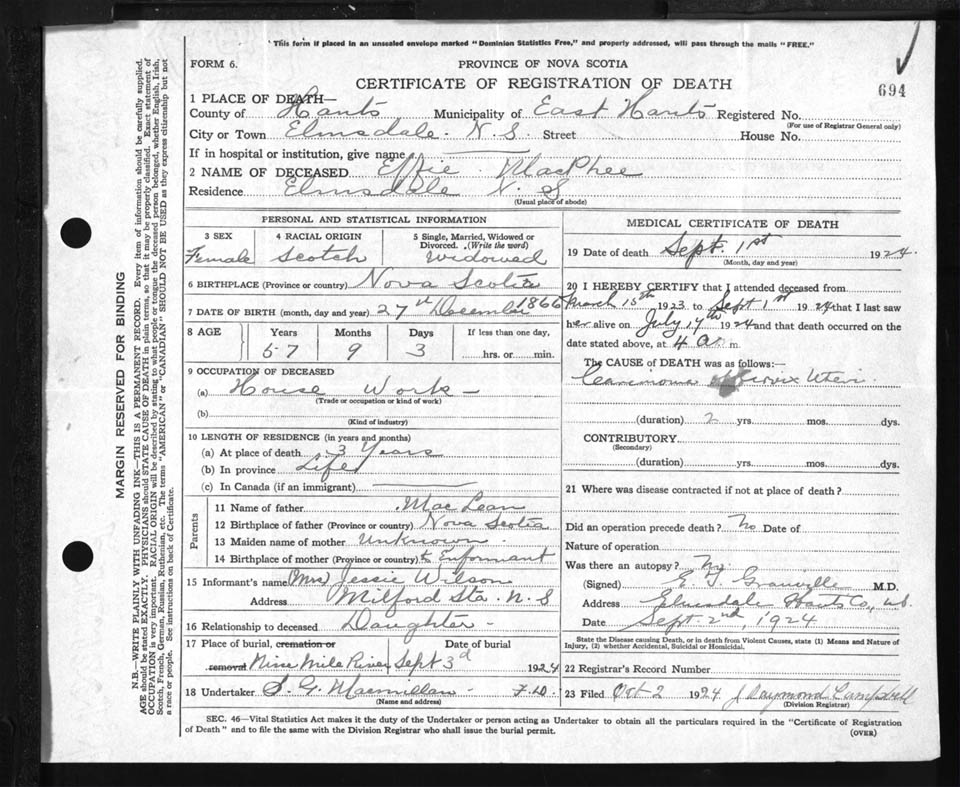 "This form if placed in an unsealed envelope marked "Dominion Statistics Free," and properly addressed, will pass through the mails "FREE."
FORM 6. PROVINCE OF NOVA SCOTIA
CERTIFICATE OF REGISTRATION OF DEATH
694
1 PLACE OF DEATH—
County of Hants Municipality of East Hants Registered No.
(For use of Registrar General only)
City or Town Elmsdale. N. S. Street House No.
If in hospital or institution, give name
2 NAME OF DECEASED Effie MacPhee
Residence Elmsdale N. S
(Usual place of abode)
PERSONAL AND STATISTICAL INFORMATION
3 SEX 4 RACIAL ORIGIN 5 Single, Married, Widowed or Divorced. (Write the word)
Female Scotch Widowed
6 BIRTHPLACE (Province or country) Nova Scotia
7 DATE OF BIRTH (month, day and year) 27th December 1866
8 AGE Years Months Days If less than one day,
57 9 3 hrs. or min.
9 OCCUPATION OF DECEASED
(a) House Work —
(Trade or occupation or kind of work)
(b)
(Kind of industry)
10 LENGTH OF RESIDENCE (in years and months)
(a) At place of death 3 Years
(b) In province Life
(c) In Canada (if an immigrant)
Parents
11 Name of father MacLean
12 Birthplace of father (Province or country) Nova Scotia
13 Maiden name of mother Unknown
14 Birthplace of mother (Province or country) to Informant
15 Informant's name (Mrs) Jessie Wilson
Address Milford Sta. N. S
16 Relationship to deceased Daughter —
17 Place of burial, cremation or removal Date of burial
Nine Mile River Sept 3d 1924
18 Undertaker S. G. Macmillan F.D.
(Name and address)
MEDICAL CERTIFICATE OF DEATH
19 Date of death Sept. 1st 1924.
(Month, day and year)
20 I HEREBY CERTIFY that I attended deceased from
March 15th 1923 to Sept 1st 1924 that I last saw
her alive on July 17th 1924 and that death occurred on
date stated above, at 4 a. m.
The CAUSE OF DEATH was as follows:
Carcinoma of Cervix Uteri.
(duration) 2 yrs. mos. dys.
CONTRIBUTORY
(Secondary)
(duration) yrs. mos. dys.
21 Where was disease contracted if not at place of death?
Did an operation precede death? No Date of
Nature of operation
Was there an autopsy? No.
(Signed) Granville M.D.
Address Elmsdale Hants Co.,
Date Sept. 2nd, 1924
State the Disease causing Death, or in death from Violent Causes, state (1) Means and Nature of Injury, (2) whether Accidental, Suicidal or Homicidal.
22 Registrar's Record Number
23 Filed Oct 2 1924 J Raymond Campbell
(Division Registrar)
SEC. 46—Vital Statistics Act makes it the duty of the Undertaker or person acting as Undertaker to obtain all the particulars required in the "Certificate of Registration
of Death" and to file the same with the Division Registrar who shall issue the burial permit. (OVER)
MARGIN RESERVED FOR BINDING
N.B.—WRITE PLAINLY WITH UNFADING INK—THIS IS A PERMANENT RECORD. Every item of information should be carefully supplied.
AGE should be stated EXACTLY. PHYSICIANS should STATE CAUSE OF DEATH in plain terms, so that it may be properly classified. Exact statement of
OCCUPATION is very important. RACIAL ORIGIN will be described by stating to what people or tongue the deceased person belonged, whether English, Irish,
Scotch, French, German, Russian, Ruthenian, etc. The terms "AMERICAN" or "CANADIAN" SHOULD NOT BE USED as they express citizenship but not
a race or people. See instructions on back of Certificate.